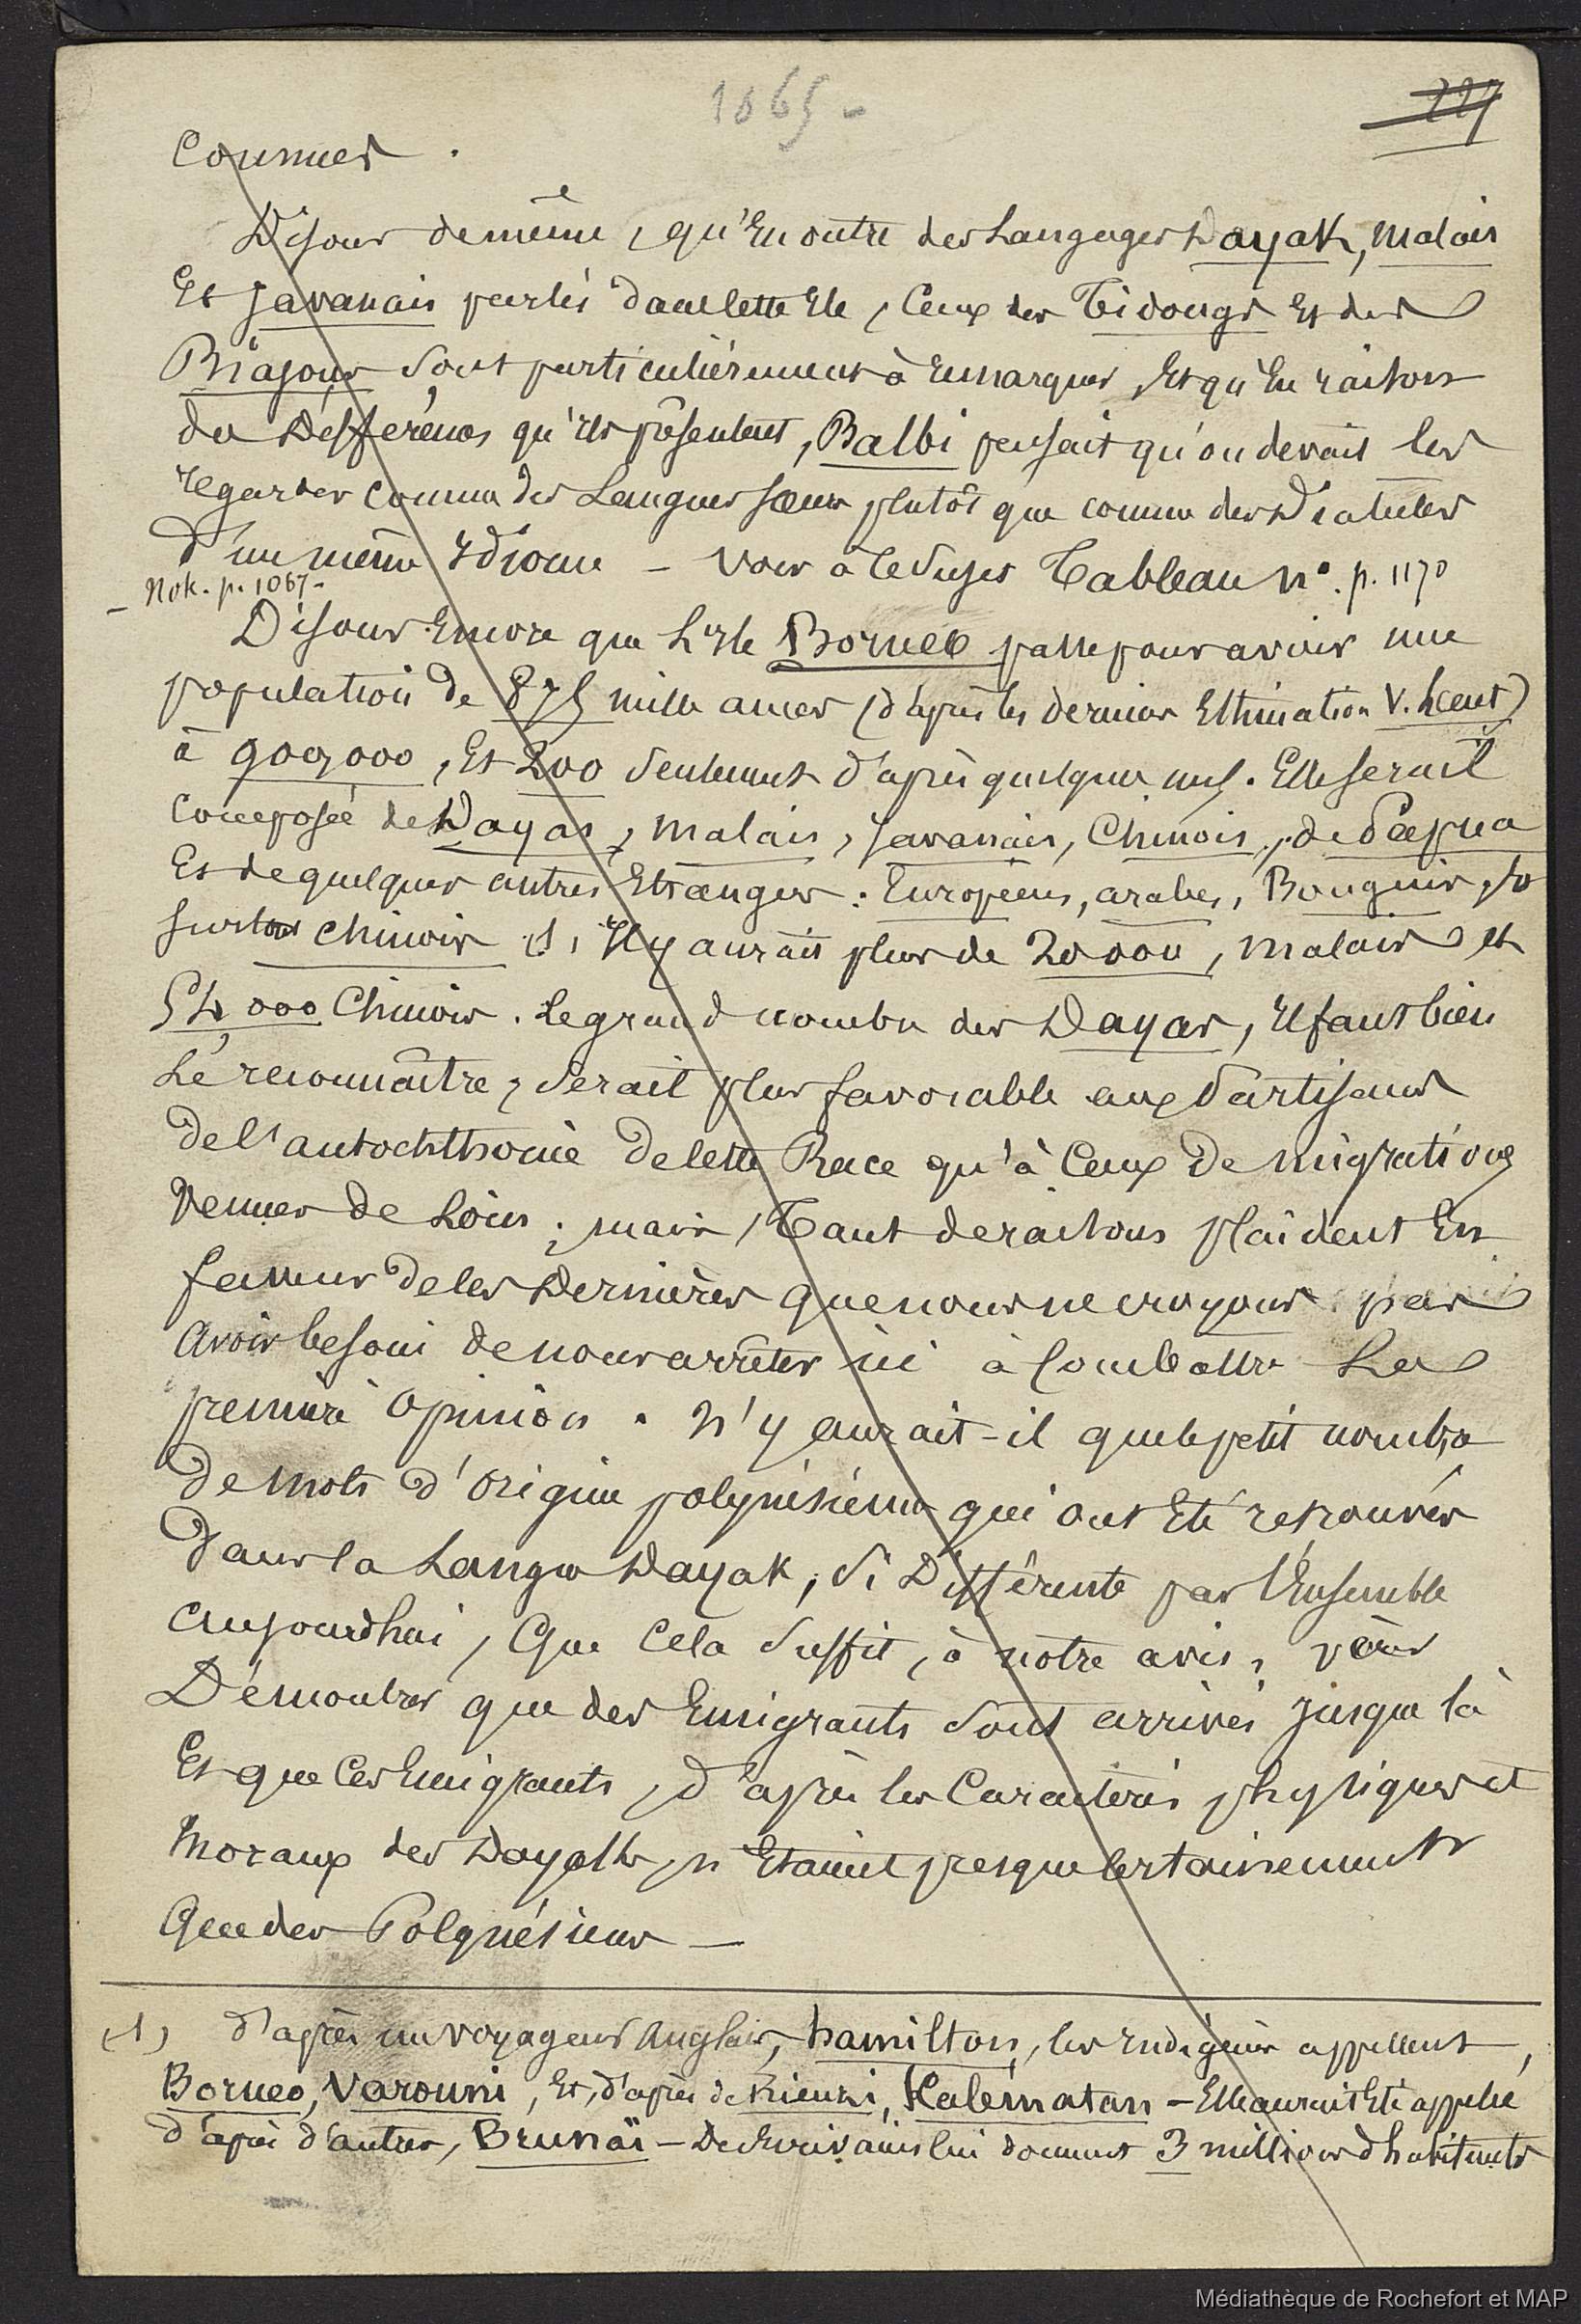 1065 -
227
connues.
Disons de même, qu'en outre des Langages Dayak, Malais
Et Javanais parlés dans cette Ile, Ceux des Tidongs Et des
Biajous sont particulièrement à remarquer, Et qu'en raison
des Différences qu'ils présentent, Balbi pensait qu'on devait les
regarder comme des Langues sœurs plutôt que comme des Dialectes
d'un même Idiome - Voir à ce sujet Tableau n°. p. 1170
- Not. p. 1067 -
Disons Encore que L'Ile Bornéo passe pour avoir une
population de 875 mille ames (d'après les dernières Estimation V. Kent)
à 900,000, Et 200 seulement d'après quelques uns. Elle serait
Composée de Dayas, Malais, Javanais, Chinois, de Papua
Et de quelques autres Etrangers : Européens, arabes, Bouguis,
surtout chinois (1) Il y aurait plus de 20000, Malais et
54,000 Chinois. Le grand nombre des Dayas, Il faut bien
Le reconnaître, serait plus favorable aux Partisans
de l'autochthonie de cette Race qu'à Ceux de migrations
Venues de Loin ; mais, Tant de raisons plaident En
faveur de ces Dernières que nous ne croyons pas
Avoir besoin de nous arrêter ici à Combattre La
première Opinion. N'y aurait-il que le petit nombre
de Mots d'Origine polynésienne qui ont Eté retrouvés
dans la Langue Dayak, si Différente par l'Ensemble
Aujourdhui, Que Cela suffit, à notre avis, pour
Démontrer que des Emigrants sont arrivés jusque là
Et que Ces Emigrants, d'après les Caractères physiques et
Moraux des Dayaks, n'Etaient presque certainement
Que des Polynésiens -
(1) d'après un voyageur Anglais, hamilton, les Indigènes appellent,
Borneo, Varouni, Et, d'après de Rienzi, Kalématan - Elle aurait Eté appelée
d'après d'autres, Brunaï - Des Ecrivains lui donnent 3 millions d'habitants
Médiathèque de Rochefort et MAP